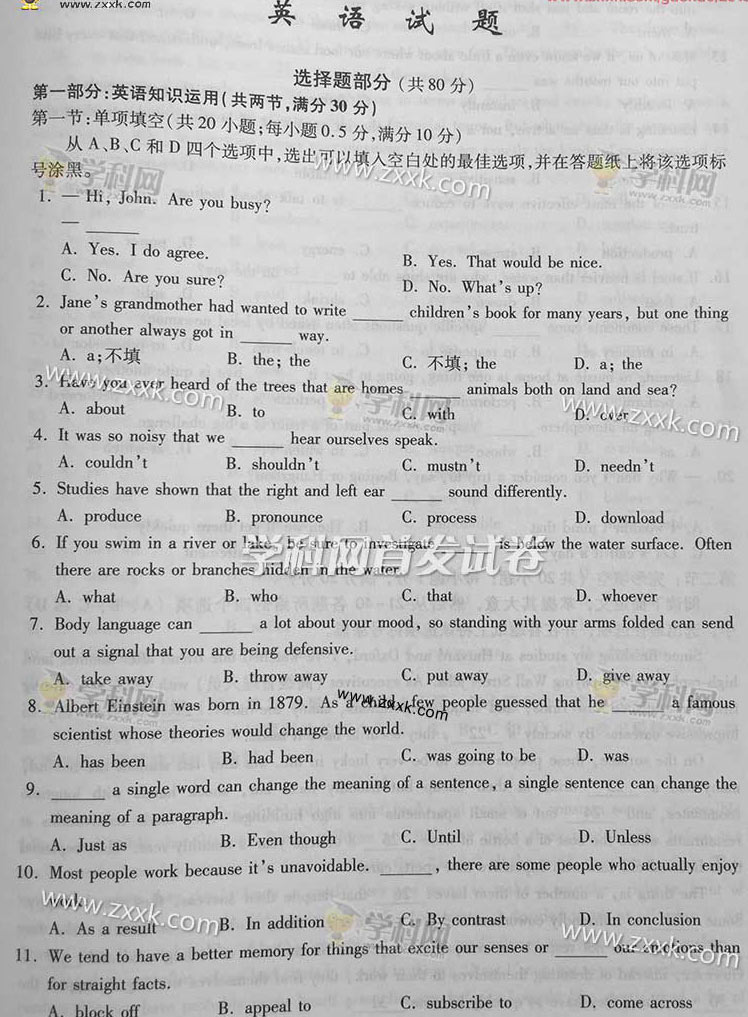 www.zxxk.com
英 语 试 题
选择题部分 (共80分)
第一部分:英语知识运用(共两节,满分30分)
第一节:单项填空(共20小题;每小题0.5分,满分10分)
从A、B、C和D四个选项中,选出可以填入空白处的最佳选项,并在答题纸上将该选项标
号涂黑。
学科网
www.zxxk.com
1. — Hi, John. Are you busy?
— ______
A. Yes. I do agree.
B. Yes. That would be nice.
C. No. Are you sure?
D. No. What's up?
2. Jane's grandmother had wanted to write ______ children's book for many years, but one thing
or another always got in ______ way.
A. a;不填 B. the; the C. 不填; the D. a; the
www.zxxk.com
学科网
www.zxxk.com
3. Have you ever heard of the trees that are homes ______ animals both on land and sea?
A. about B. to C. with D. over
4. It was so noisy that we ______ hear ourselves speak.
A. couldn't B. shouldn't C. mustn't D. needn't
5. Studies have shown that the right and left ear ______ sound differently.
A. produce B. pronounce C. process D. download
学科网首发试卷
6. If you swim in a river or lake, be sure to investigate ______ is below the water surface. Often
there are rocks or branches hidden in the water.
A. what B. who C. that D. whoever
7. Body language can ______ a lot about your mood, so standing with your arms folded can send
out a signal that you are being defensive.
A. take away B. throw away C. put away D. give away
学科网
www.zxxk.com
学科网
8. Albert Einstein was born in 1879. As a child, few people guessed that he ______ a famous
scientist whose theories would change the world.
A. has been B. had been C. was going to be D. was
9. ______ a single word can change the meaning of a sentence, a single sentence can change the
meaning of a paragraph.
A. Just as B. Even though C. Until D. Unless
10. Most people work because it's unavoidable. ______, there are some people who actually enjoy
work.
www.zxxk.com
学科网
www.zxxk.com
A. As a result B. In addition C. By contrast D. In conclusion
11. We tend to have a better memory for things that excite our senses or ______ our emotions than
for straight facts.
A. block off B. appeal to C. subscribe to D. come across